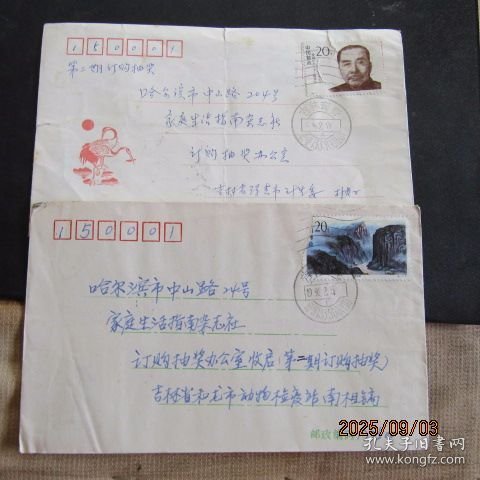 150001
20分
第二期订购抽奖
哈尔滨市中山路204号
家庭生活指南杂志社
订购抽奖办公室
吉林省
150001
20
哈尔滨市中山路24号
家庭生活指南杂志社
订购抽奖办公室收启(第二期订购抽奖)
吉林省和龙市动物检疫站南相镐
邮政
2025/09/03
孔夫子旧书网
www.kongfz.com